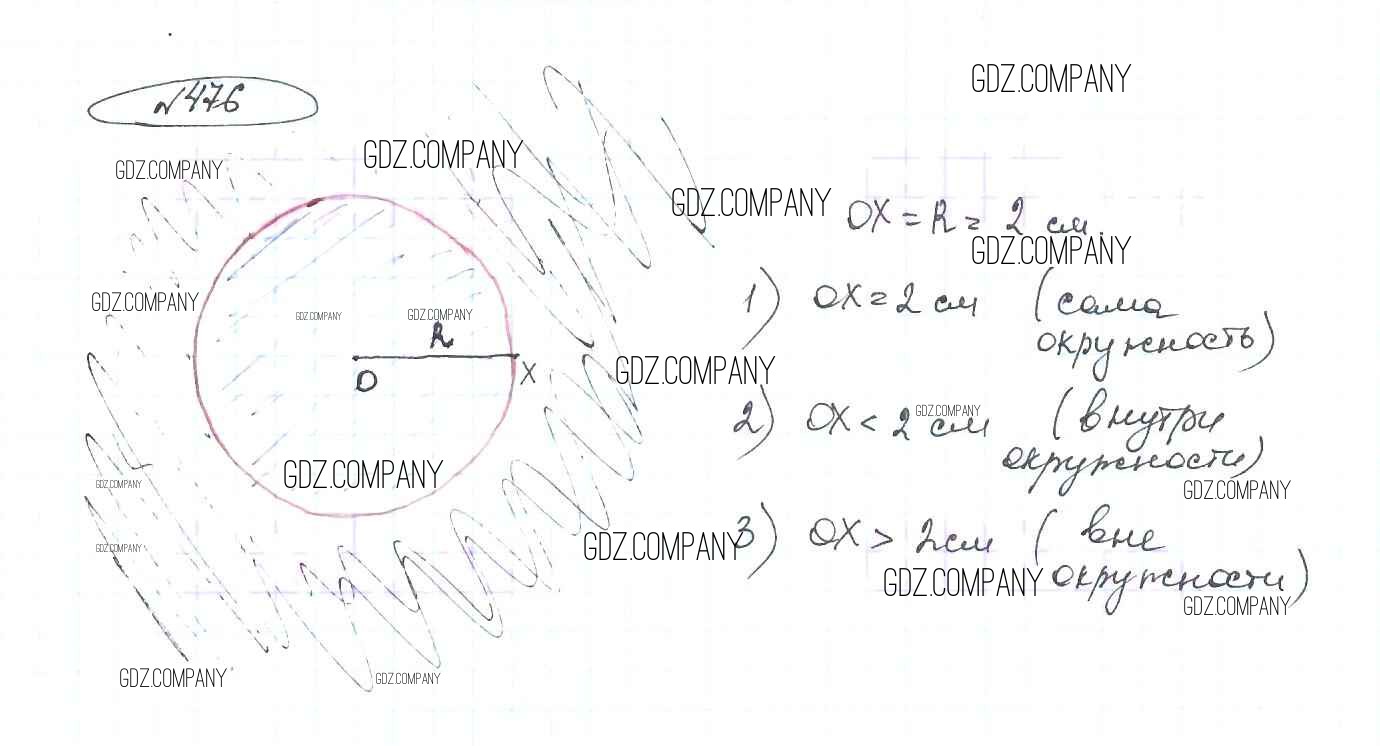 №476
GDZ.COMPANY
GDZ.COMPANY
GDZ.COMPANY
GDZ.COMPANY
OX = R = 2 см.
GDZ.COMPANY
1) OX = 2 см (сама
окружность)
GDZ.COMPANY
GDZ.COMPANY
GDZ.COMPANY
R
O
X
GDZ.COMPANY
2) OX < 2 см (внутри
GDZ.COMPANY
окружности)
GDZ.COMPANY
GDZ.COMPANY
GDZ.COMPANY
3) OX > 2 см (вне
GDZ.COMPANY
GDZ.COMPANY
окружности)
GDZ.COMPANY
GDZ.COMPANY
GDZ.COMPANY
GDZ.COMPANY